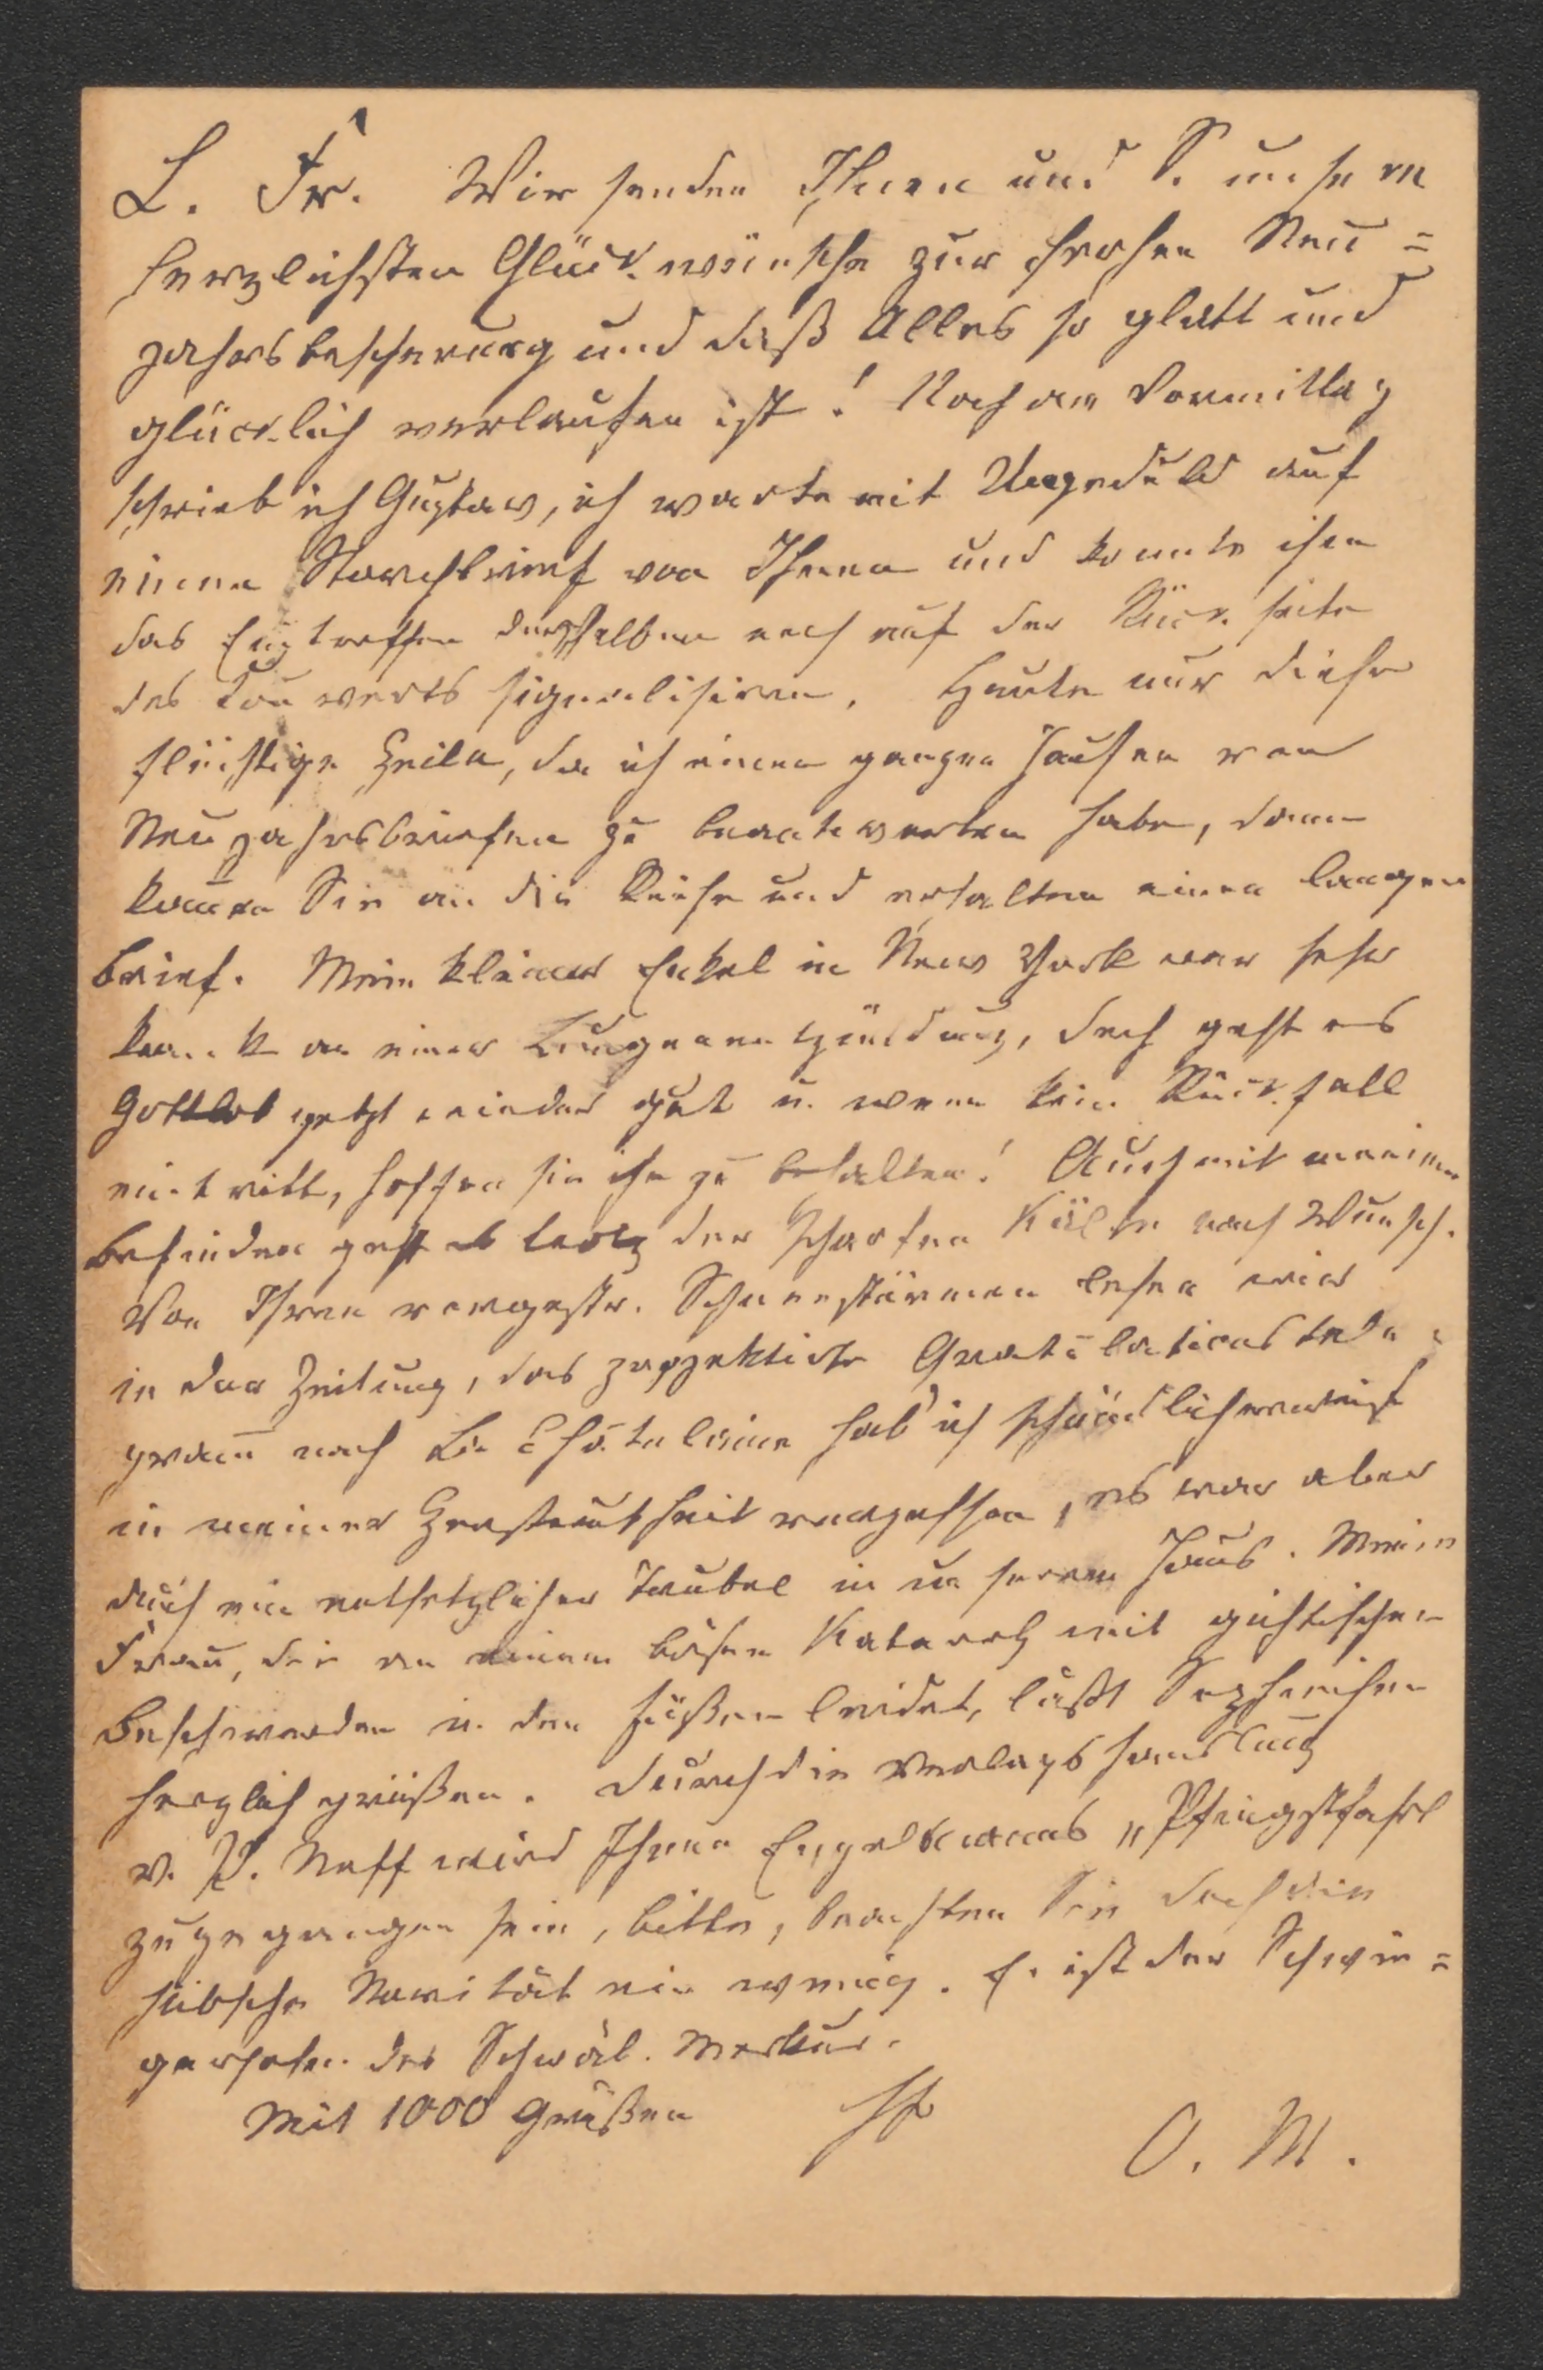 L. Fr. Wir senden Ihnen und S. unsere
herzlichsten Glückwünsche zur frohen Neu=
jahrsbescherung und daß Alles so glatt und
glücklich verlaufen ist! Noch am Vormittag
schrieb ich Gustav, ich warte mit Ungeduld auf
einen Storchbrief von Ihnen und konnte ihm
das Eintreffen desselben noch auf der Rückseite
des Couverts signalisiren. Heute nur diese
flüchtige Zeile, da ich einen ganzen Haufen von
Neujahrsbriefen zu beantworten habe, dann
kom̅en Sie an die Reihe und erhalten einen langen
Brief. Mein kleiner Enkel in New York war sehr
krank an einer Lungenentzündung, doch geht es
Gottlob jetzt wieder gut u. wenn kein Rückfall
eintritt, hoffen sie ihn zu behalten! Auch mit meinem
Befinden geht es trotz der scharfen Kälte nach Wunsch.
Von Ihren vorgestr. Schneestürmen lesen wir
in der Zeitung, das projektirte Gratulationstele=
gram̅ nach La Châtelaine hab' ich schändlicherweise
in meiner Zerstreutheit vergessen, es war aber
auch ein entsetzlicher Trubel in unserem Haus. Meine
Frau, die an einem bösen Katarrh mit gichtischen
Beschwerden in den Füßen leidet, läßt Sephchen
herzlich grüßen. Durch die Verlagshandlung
v. P. Neff wird Ihnen Engelmanns „Pfingstfahrt
zugegangen sein, bitte, beachten Sie doch die
hübsche Novität ein wenig. E. ist der Schwie=
gersohn des Schwäb. Merkur.
Mit 1000 Grüßen
O. M.